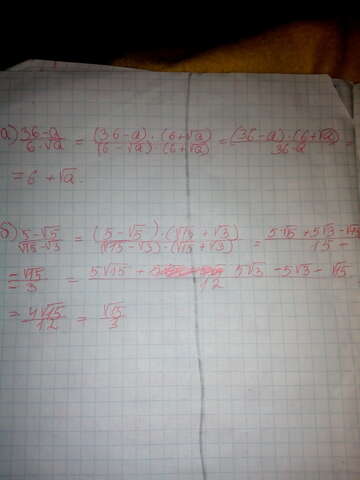 а) (36-a)/(6-√a) = ((36-a)·(6+√a))/((6-√a)·(6+√a)) = ((36-a)·(6+√a))/(36-a) =
= 6+√a.
б) (5-√5)/(√15-√3) = ((5-√5)·(√15+√3))/((√15-√3)·(√15+√3)) = (5√15+5√3-√75)/(15-
-√15)/(-3) = (5√15+5√3-5√3-√15)/12
= 4√15/12 = √15/3